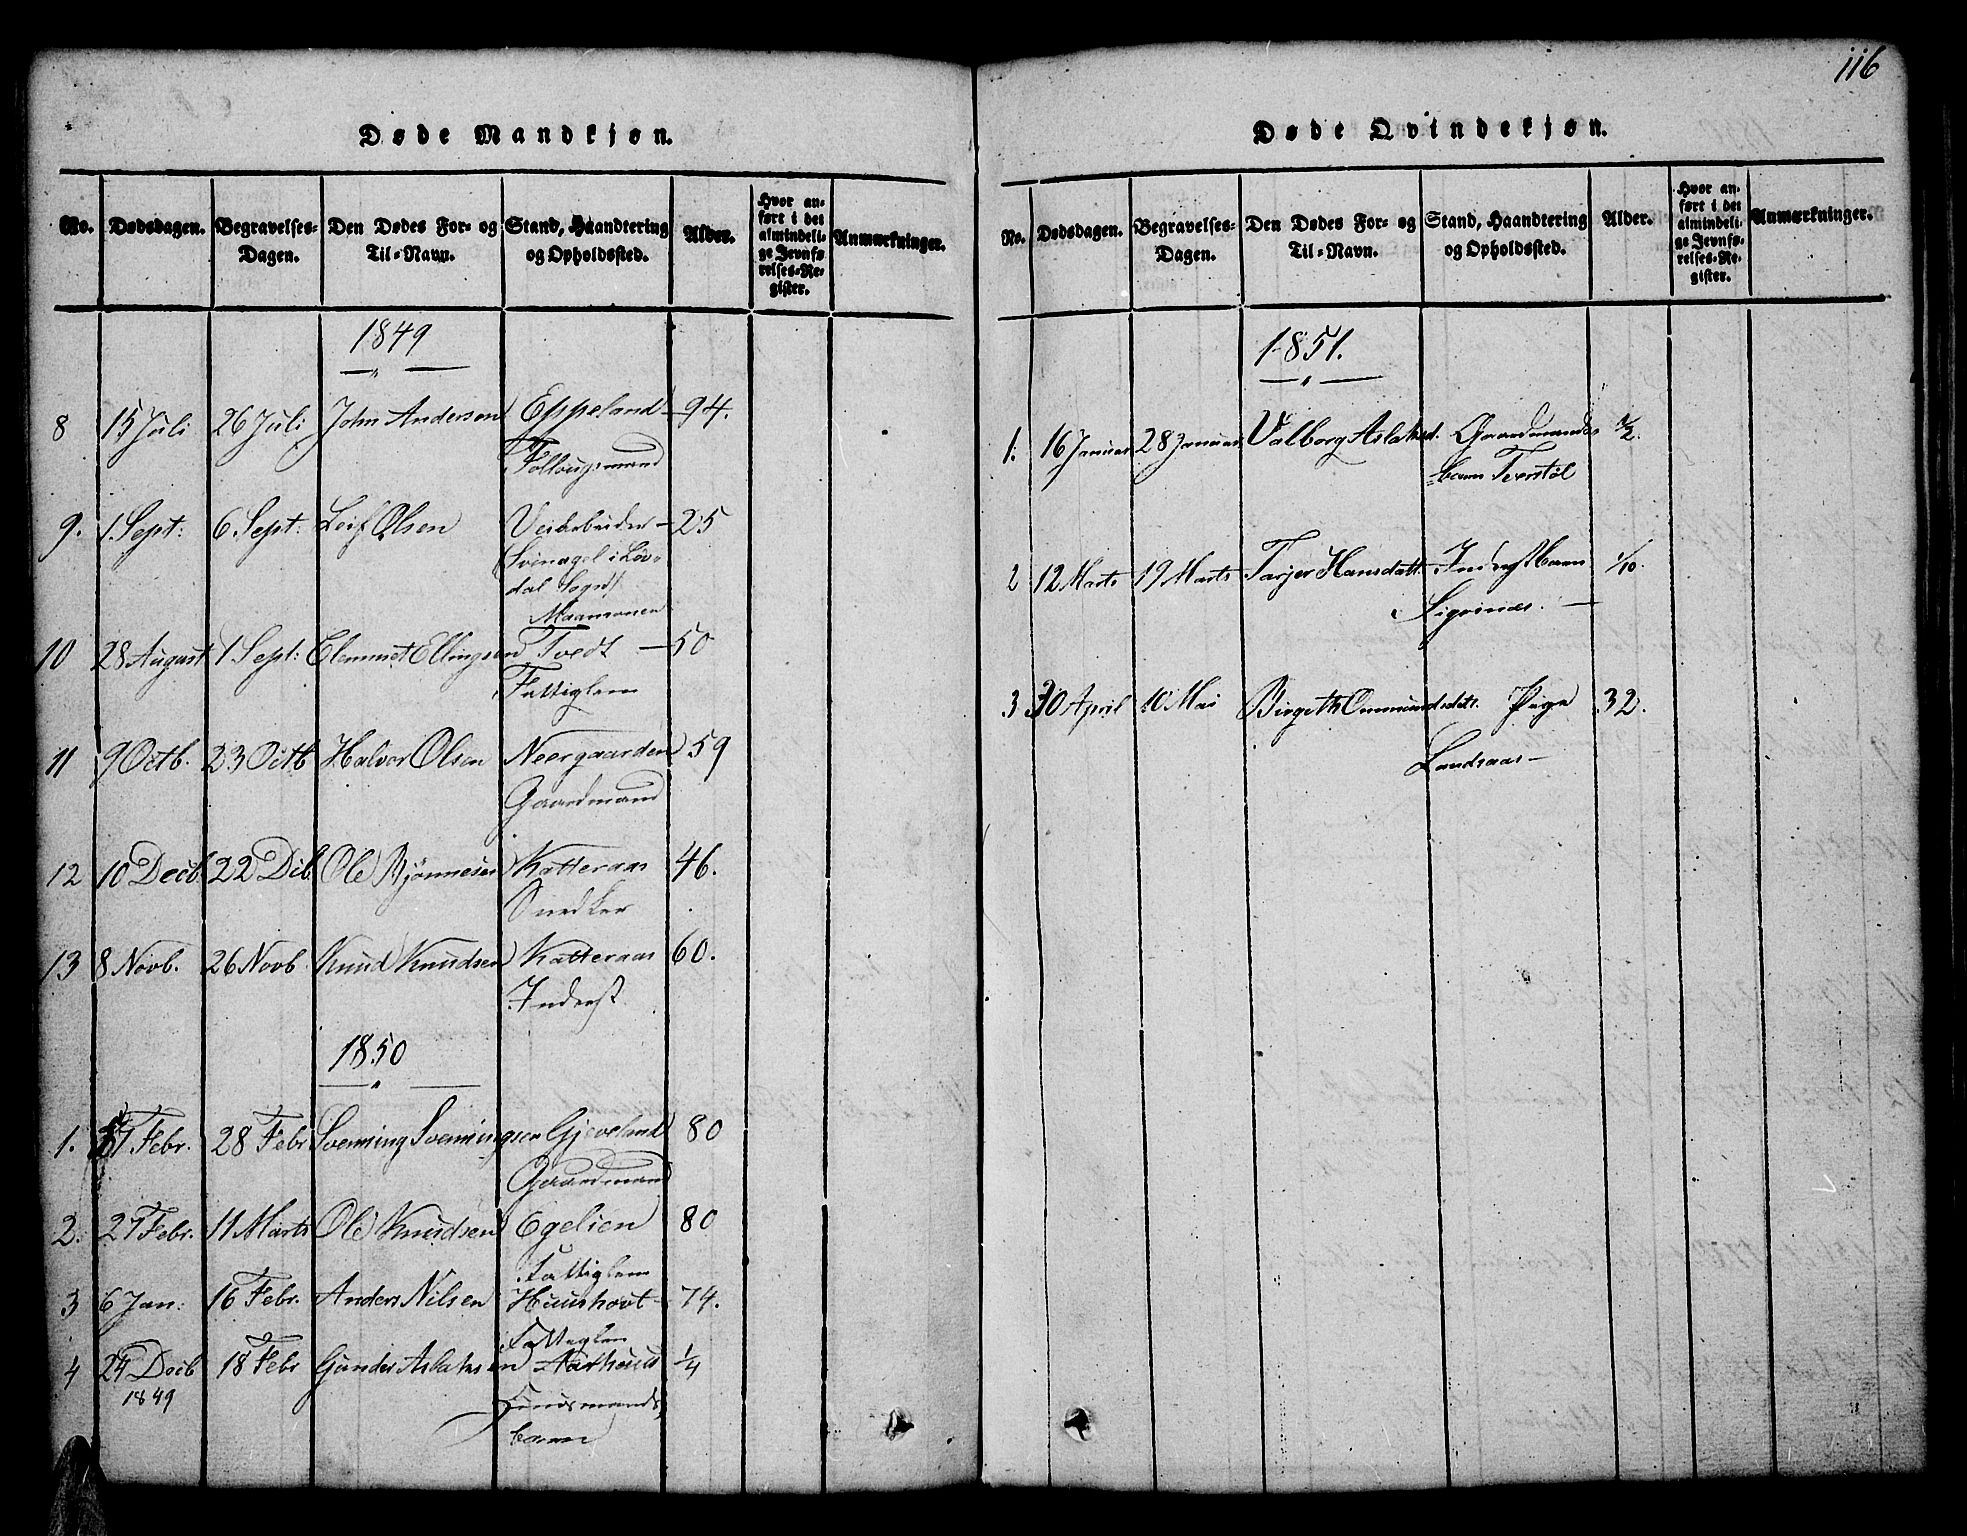 Døde Mandkjøn.
No. Dødsdagen. Begravelses-Dagen. Den Dødes For- og Til-Navn. Stand, Haandtering og Opholdssted. Alder. Hvor anført i det almindelige Jevnførelses-Register. Anmærkninger.
1849
8 15 Juli 26 Juli John Andersen Eppeland 94.
Follougsmand
9. 1 Sept: 6 Sept: Leif Olsen Veiarbeider 25
(Svinagel i Løvdal Sogn)
10 28 August 1 Sept: Clemmet Ellingsen Tvedt 50
Fattiglem
11 9 Octb. 23 Octb Halvor Olsen Neergaarden 59
Gaardmand
12 10 Decb. 22 Dcb. Ole Bjönnesen Katteraas 46.
Snedker
13 8 Novb. 26 Novb Knud Knudsen Katteraas 60.
Inderst
1850
1. Febr. 28 Febr Svenning Svenningsen Gjeveland 80
Gaardmand
2. 27 Febr. 11 Marts Ole Knudsen Egelien 80
Fattiglem
3 6 Jan: 16 Febr. Anders Nilsen Huushovt 74.
Fattiglem
4 24 Decb 18 Febr Gunder Aslaksen Aarhuus 1/4
1849
Huusmands
barn
116
Døde Qvindekjøn.
No. Dødsdagen. Begravelses-Dagen. Den Dødes For- og Til-Navn. Stand, Haandtering og Opholdssted. Alder. Hvor anført i det almindelige Jevnførelses-Register. Anmærkninger.
1851.
1. 16 Januar 28 Januar Valborg Aslaksd. Gaardmands 1/2.
barn
2 12 Marts 19 Marts Tarjer Hansdatt. Inderst Barn 1/10.
Sigvines.
3 30 April 10 Mai Birgith Ommundsdatt. Pige 32.
Landsaas